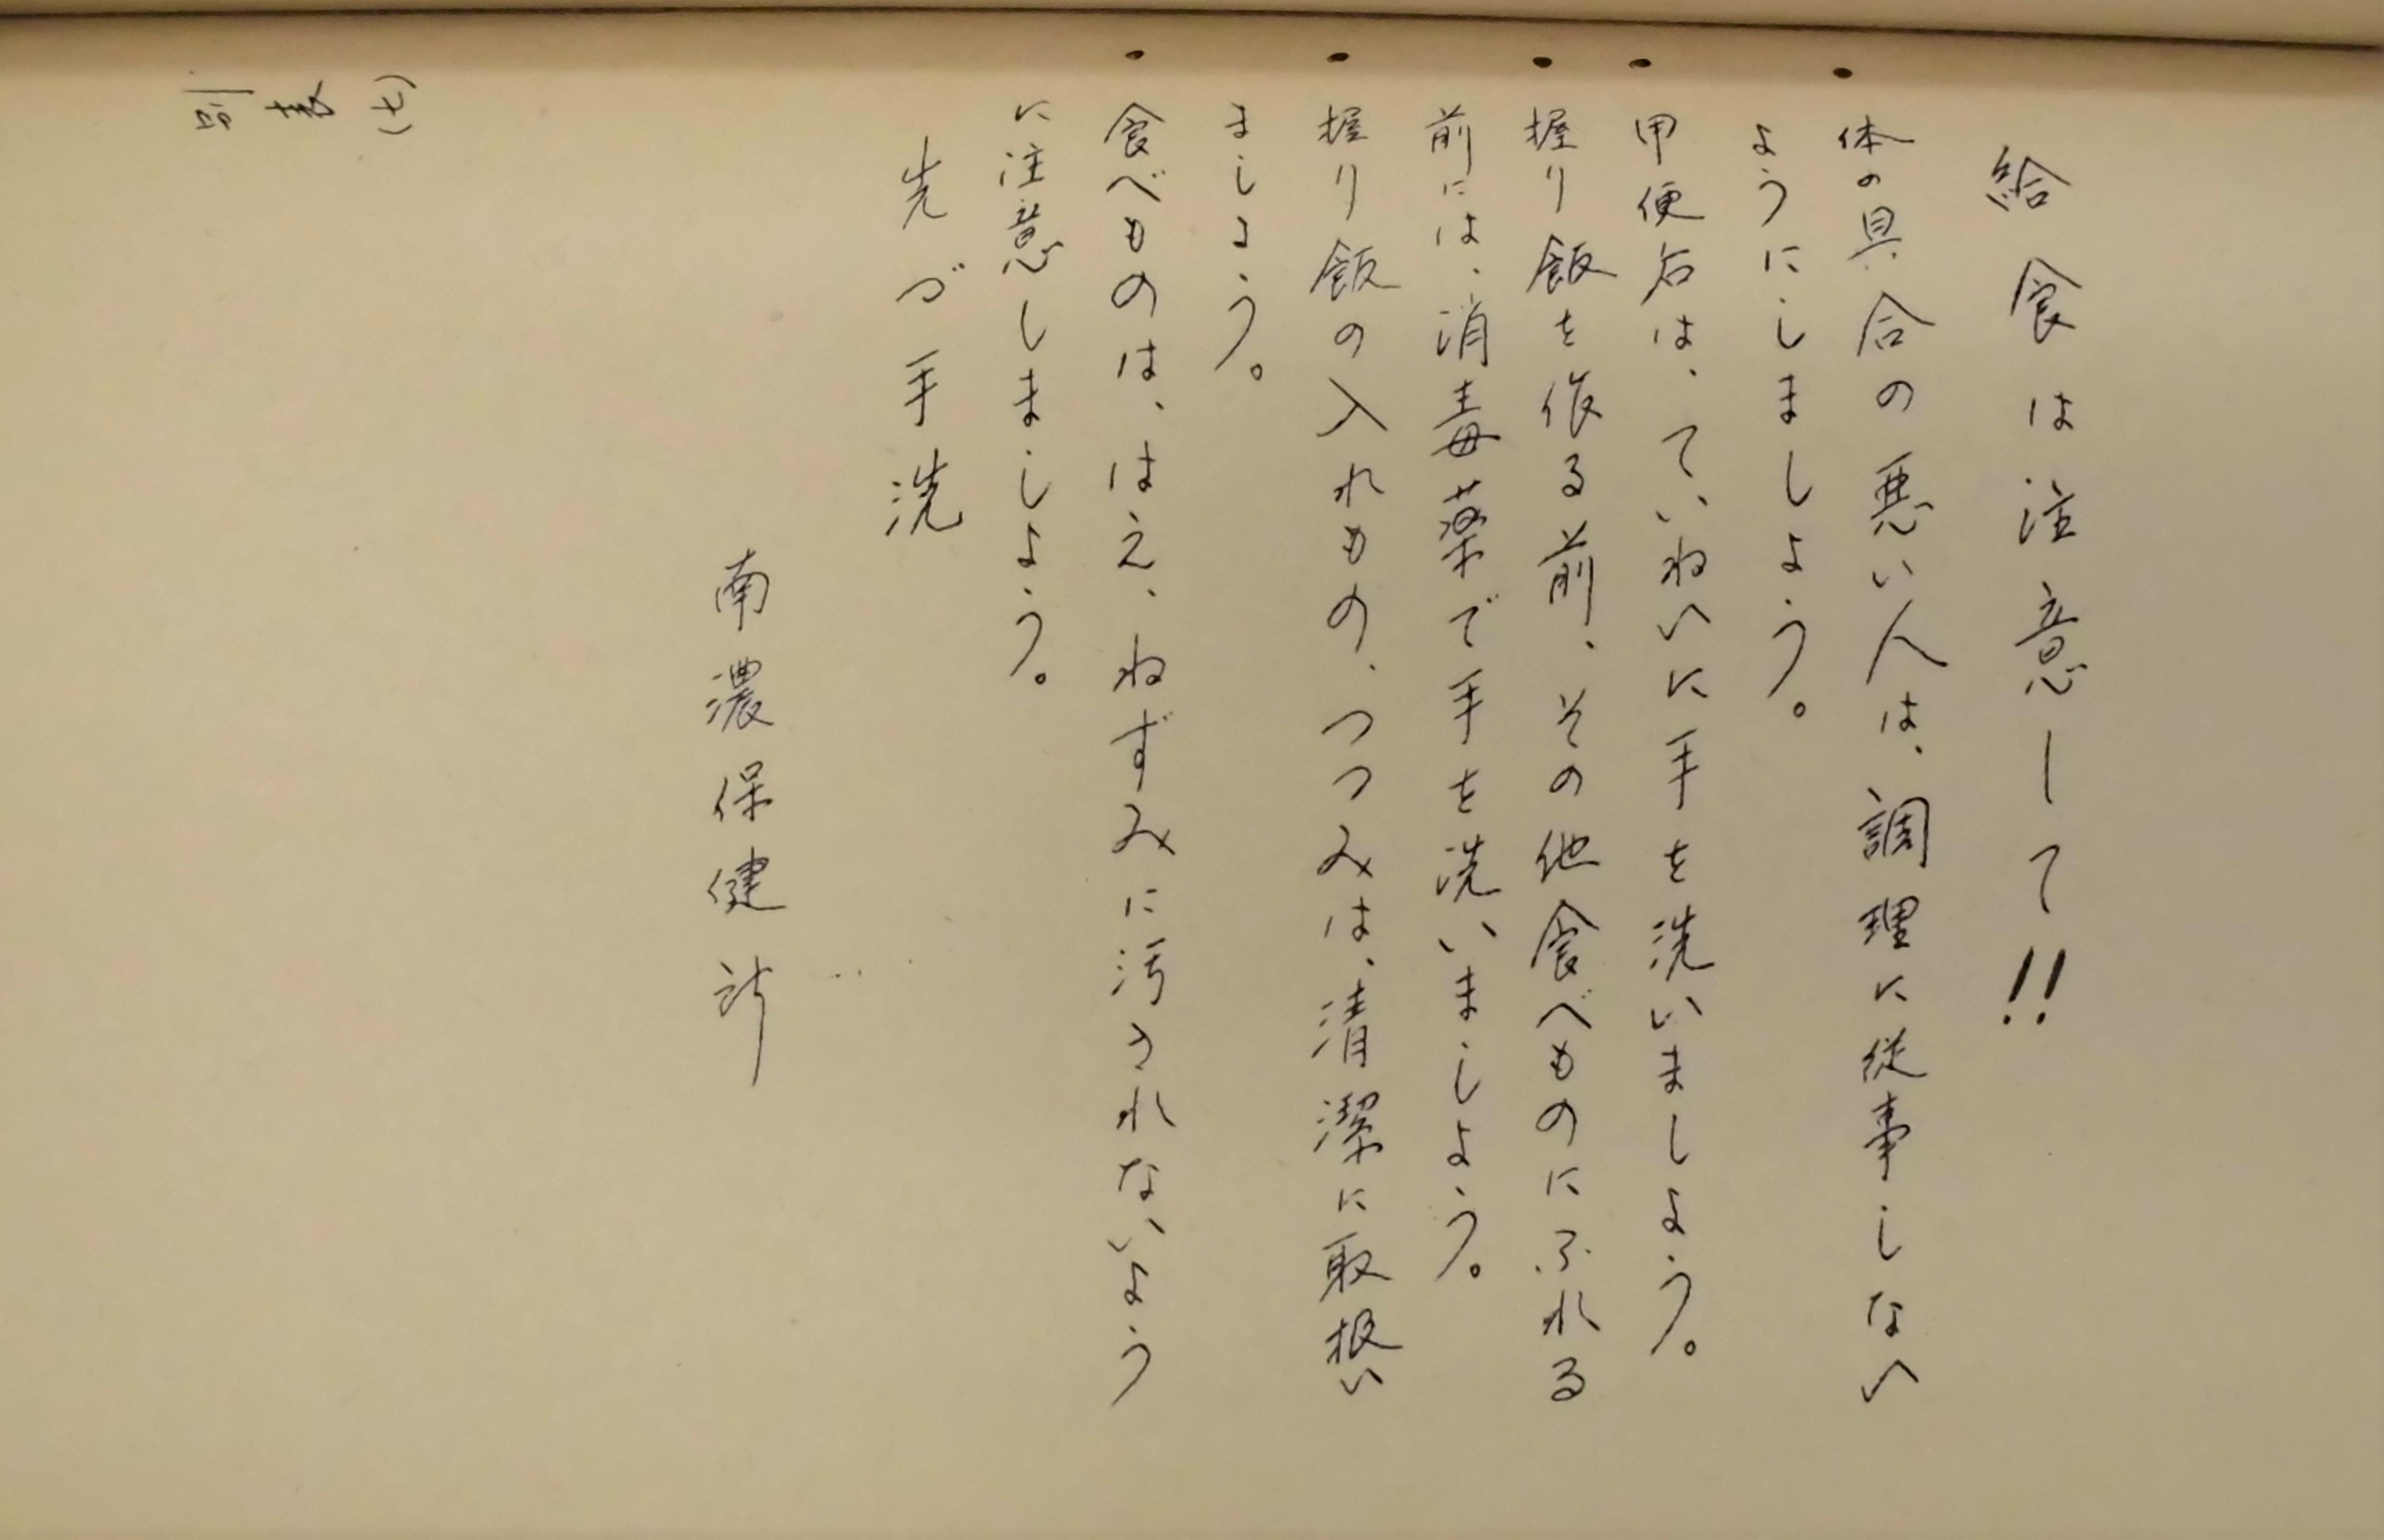 給食は注意して!!
・体の具合の悪い人は、調理に従事しない
ようにしましよう。
・用便后は、ていねいに手を洗いましよう。
・握り飯を作る前、その他食べものにふれる
前には、消毒薬で手を洗いましよう。
・握り飯の入れもの、つつみは、清潔に取扱い
ましよう。
・食べものは、はえ、ねずみに汚されないよう
に注意しましよう。
先づ手洗
南濃保健所